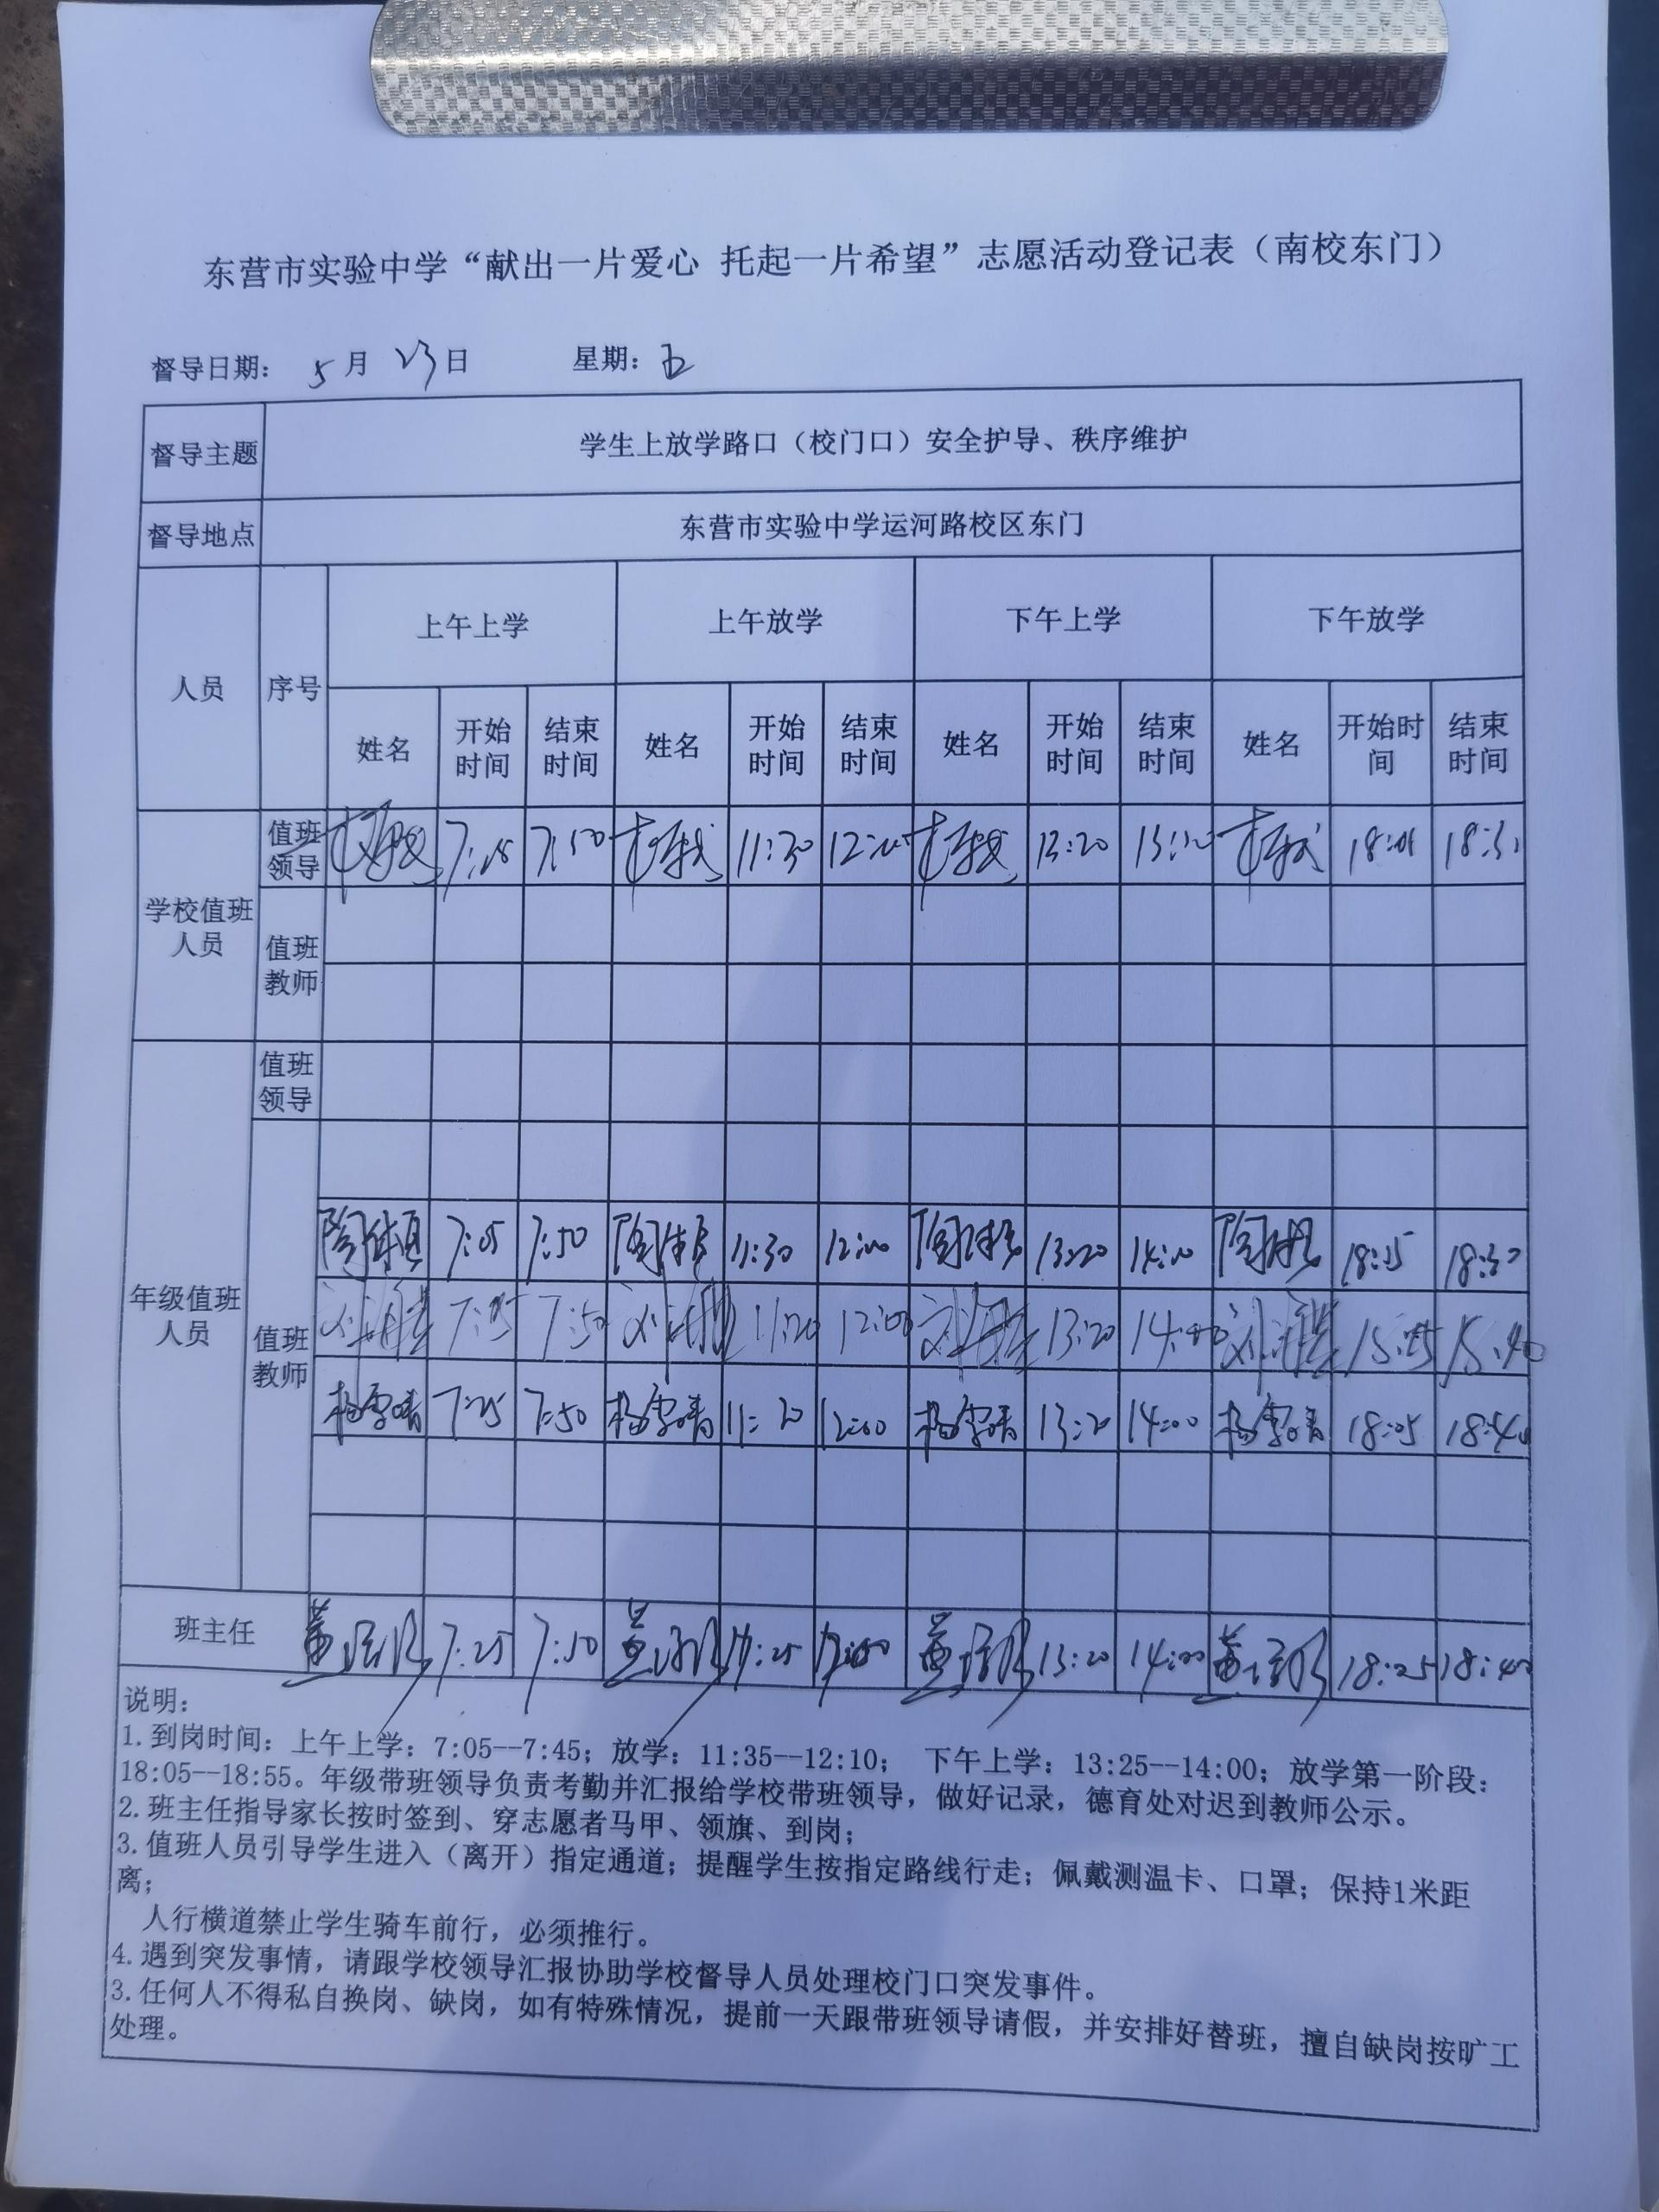 东营市实验中学“献出一片爱心 托起一片希望”志愿活动登记表（南校东门）
督导日期： 5 月 23 日 星期：五
督导主题 学生上放学路口（校门口）安全护导、秩序维护
督导地点 东营市实验中学运河路校区东门
人员 序号 上午上学 上午放学 下午上学 下午放学
姓名 开始时间 结束时间 姓名 开始时间 结束时间 姓名 开始时间 结束时间 姓名 开始时间 结束时间
学校值班人员 值班领导 7:50 11:30 13:20
值班教师
年级值班人员 值班领导
值班教师
7:05 7:50 11:30 12:00 13:20 14:00 18:30
7:50 11:20 12:00 13:20 14:00
杨雪晴 7:25 7:50 杨雪晴 11:20 12:00 杨雪晴 13:20 14:00 杨雪晴 18:05 18:40
班主任 7:25 7:50 13:20 14:00 18:25 18:40
说明：
1.到岗时间：上午上学：7:05--7:45；放学：11:35--12:10； 下午上学：13:25--14:00；放学第一阶段：
18:05--18:55。年级带班领导负责考勤并汇报给学校带班领导，做好记录，德育处对迟到教师公示。
2.班主任指导家长按时签到、穿志愿者马甲、领旗、到岗；
3.值班人员引导学生进入（离开）指定通道；提醒学生按指定路线行走；佩戴测温卡、口罩；保持1米距
离；
人行横道禁止学生骑车前行，必须推行。
4.遇到突发事情，请跟学校领导汇报协助学校督导人员处理校门口突发事件。
3.任何人不得私自换岗、缺岗，如有特殊情况，提前一天跟带班领导请假，并安排好替班，擅自缺岗按旷工
处理。